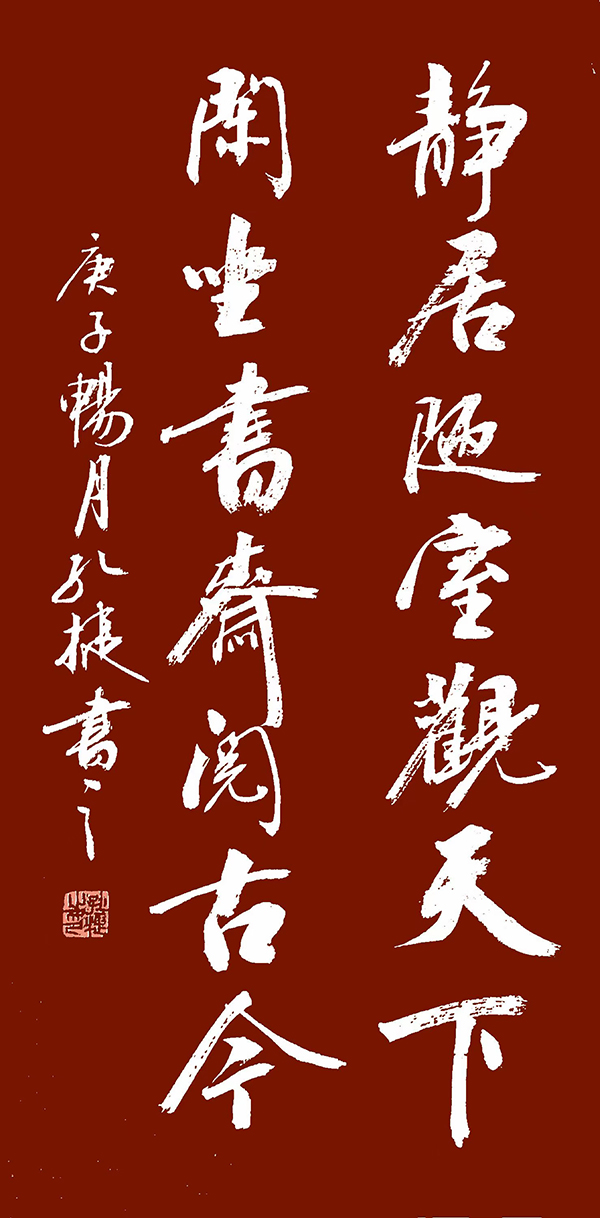 静居陋室觀天下
閑坐書齋閱古今
庚子暢月孔捷書之